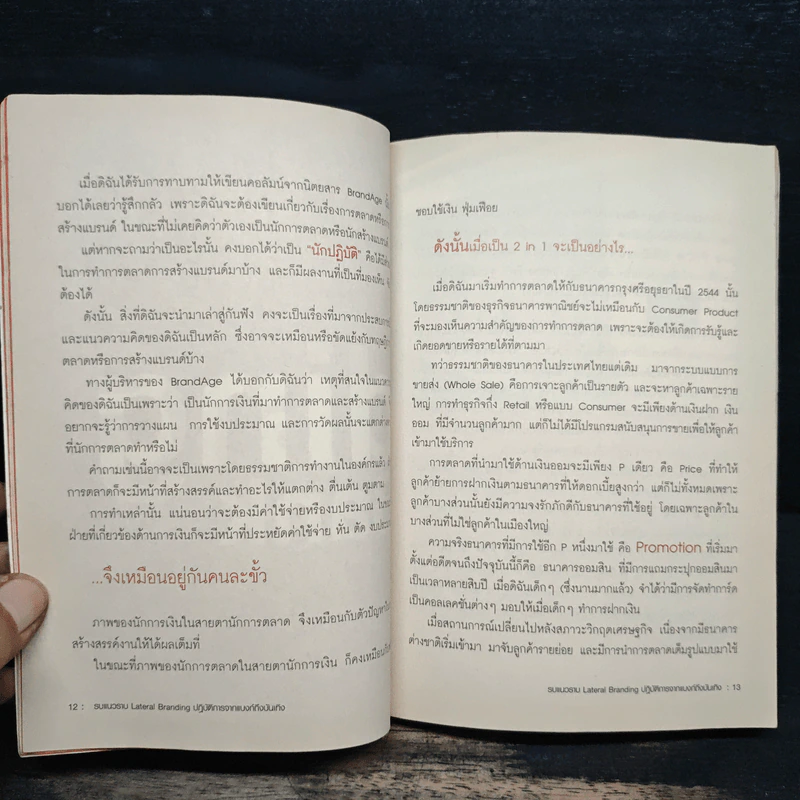 เมื่อดิฉันได้รับการทาบทามให้เขียนคอลัมน์จากนิตยสาร BrandAge
บอกได้เลยว่ารู้สึกกลัว เพราะดิฉันจะต้องเขียนเกี่ยวกับเรื่องการตลาดหรือการ
สร้างแบรนด์ ในขณะที่ไม่เคยคิดว่าตัวเองเป็นนักการตลาดหรือนักสร้างแบรนด์
แต่หากจะถามว่าเป็นอะไรนั้น คงบอกได้ว่าเป็น "นักปฏิบัติ"
ในการทำการตลาดการสร้างแบรนด์มาบ้าง และก็มีผลงานที่เป็นที่มองเห็น
ต้องได้
ดังนั้น สิ่งที่ดิฉันจะนำมาเล่าสู่กันฟัง คงจะเป็นเรื่องที่มาจากประสบการ
และแนวความคิดของดิฉันเป็นหลัก ซึ่งอาจจะเหมือนหรือขัดแย้งกับทฤษฎี
ตลาดหรือการสร้างแบรนด์บ้าง
ทางผู้บริหารของ BrandAge ได้บอกกับดิฉันว่า เหตุที่สนใจในแนว
คิดของดิฉันเป็นเพราะว่า เป็นนักการเงินที่มาทำการตลาดและสร้างแบรนด์
อยากจะรู้ว่าการวางแผน การใช้งบประมาณ และการวัดผลนั้นจะแตกต่าง
ที่นักการตลาดทำหรือไม่
คำถามเช่นนี้อาจจะเป็นเพราะโดยธรรมชาติการทำงานในองค์กรแล้ว
การตลาดก็จะมีหน้าที่สร้างสรรค์และทำอะไรให้แตกต่าง ตื่นเต้น ตูมตาม
การทำเหล่านั้น แน่นอนว่าจะต้องมีค่าใช้จ่ายหรืองบประมาณ
ฝ่ายที่เกี่ยวข้องด้านการเงินก็จะมีหน้าที่ประหยัดค่าใช้จ่าย หั่น ตัด งบประมาณ
...จึงเหมือนอยู่กันคนละขั้ว
ภาพของนักการเงินในสายตานักการตลาด จึงเหมือนกับตัวปัญหา
สร้างสรรค์งานให้ได้ผลเต็มที่
ในขณะที่ภาพของนักการตลาดในสายตานักการเงิน ก็คงเหมือน
12 : รบแนวราบ Lateral Branding ปฏิบัติการจากแบงก์ถึงบันเทิง
ชอบใช้เงิน ฟุ่มเฟือย
ดังนั้นเมื่อเป็น 2 in 1 จะเป็นอย่างไร...
เมื่อดิฉันมาเริ่มทำการตลาดให้กับธนาคารกรุงศรีอยุธยาในปี 2544 นั้น
โดยธรรมชาติของธุรกิจธนาคารพาณิชย์จะไม่เหมือนกับ Consumer Product
ที่จะมองเห็นความสำคัญของการทำการตลาด เพราะจะต้องให้เกิดการรับรู้และ
เกิดยอดขายหรือรายได้ที่ตามมา
ทว่าธรรมชาติของธนาคารในประเทศไทยแต่เดิม มาจากระบบแบบการ
ขายส่ง (Whole Sale) คือการเจาะลูกค้าเป็นรายตัว และจะหาลูกค้าเฉพาะราย
ใหญ่ การทำธุรกิจกึ่ง Retail หรือแบบ Consumer จะมีเพียงด้านเงินฝาก เงิน
ออม ที่มีจำนวนลูกค้ามาก แต่ก็ไม่ได้มีโปรแกรมสนับสนุนการขายเพื่อให้ลูกค้า
เข้ามาใช้บริการ
การตลาดที่นำมาใช้ด้านเงินออมจะมีเพียง P เดียว คือ Price ที่ทำให้
ลูกค้าย้ายการฝากเงินตามธนาคารที่ให้ดอกเบี้ยสูงกว่า แต่ก็ไม่ทั้งหมดเพราะ
ลูกค้าบางส่วนนั้นยังมีความจงรักภักดีกับธนาคารที่ใช้อยู่ โดยเฉพาะลูกค้าใน
บางส่วนที่ไม่ใช่ลูกค้าในเมืองใหญ่
ความจริงธนาคารที่มีการใช้อีก P หนึ่งมาใช้ คือ Promotion ที่เริ่มมา
ตั้งแต่อดีตจนถึงปัจจุบันนี้ก็คือ ธนาคารออมสิน ที่มีการแถมกระปุกออมสินมา
เป็นเวลาหลายสิบปี เมื่อดิฉันเด็กๆ (ซึ่งนานมากแล้ว) จำได้ว่ามีการจัดทำการ์ด
เป็นคอลเลคชั่นต่างๆ มอบให้เมื่อเด็กๆ ทำการฝากเงิน
เมื่อสถานการณ์เปลี่ยนไปหลังสภาวะวิกฤตเศรษฐกิจ เนื่องจากมีธนาคาร
ต่างชาติเริ่มเข้ามา มาจับลูกค้ารายย่อย และมีการนำการตลาดเต็มรูปแบบมาใช้
รบแนวราบ Lateral Branding ปฏิบัติการจากแบงก์ถึงบันเทิง : 13